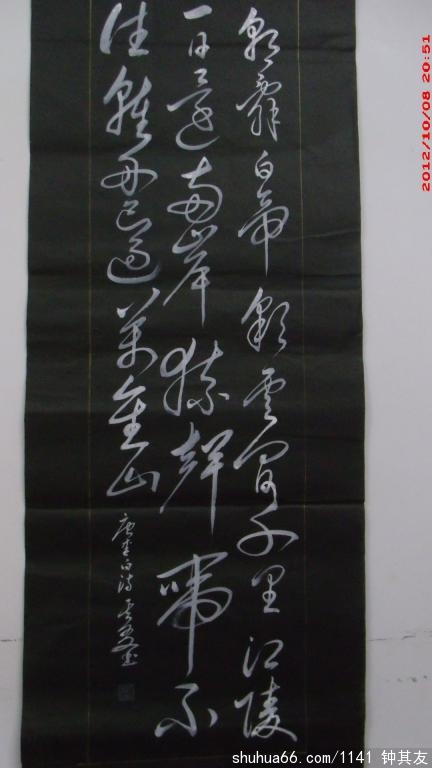 朝辭白帝彩雲間千里江陵
一日還兩岸猿聲啼不
住輕舟已過萬重山
唐李白詩
2012/10/08 20:51
shuhua66.com/1141 钟其友